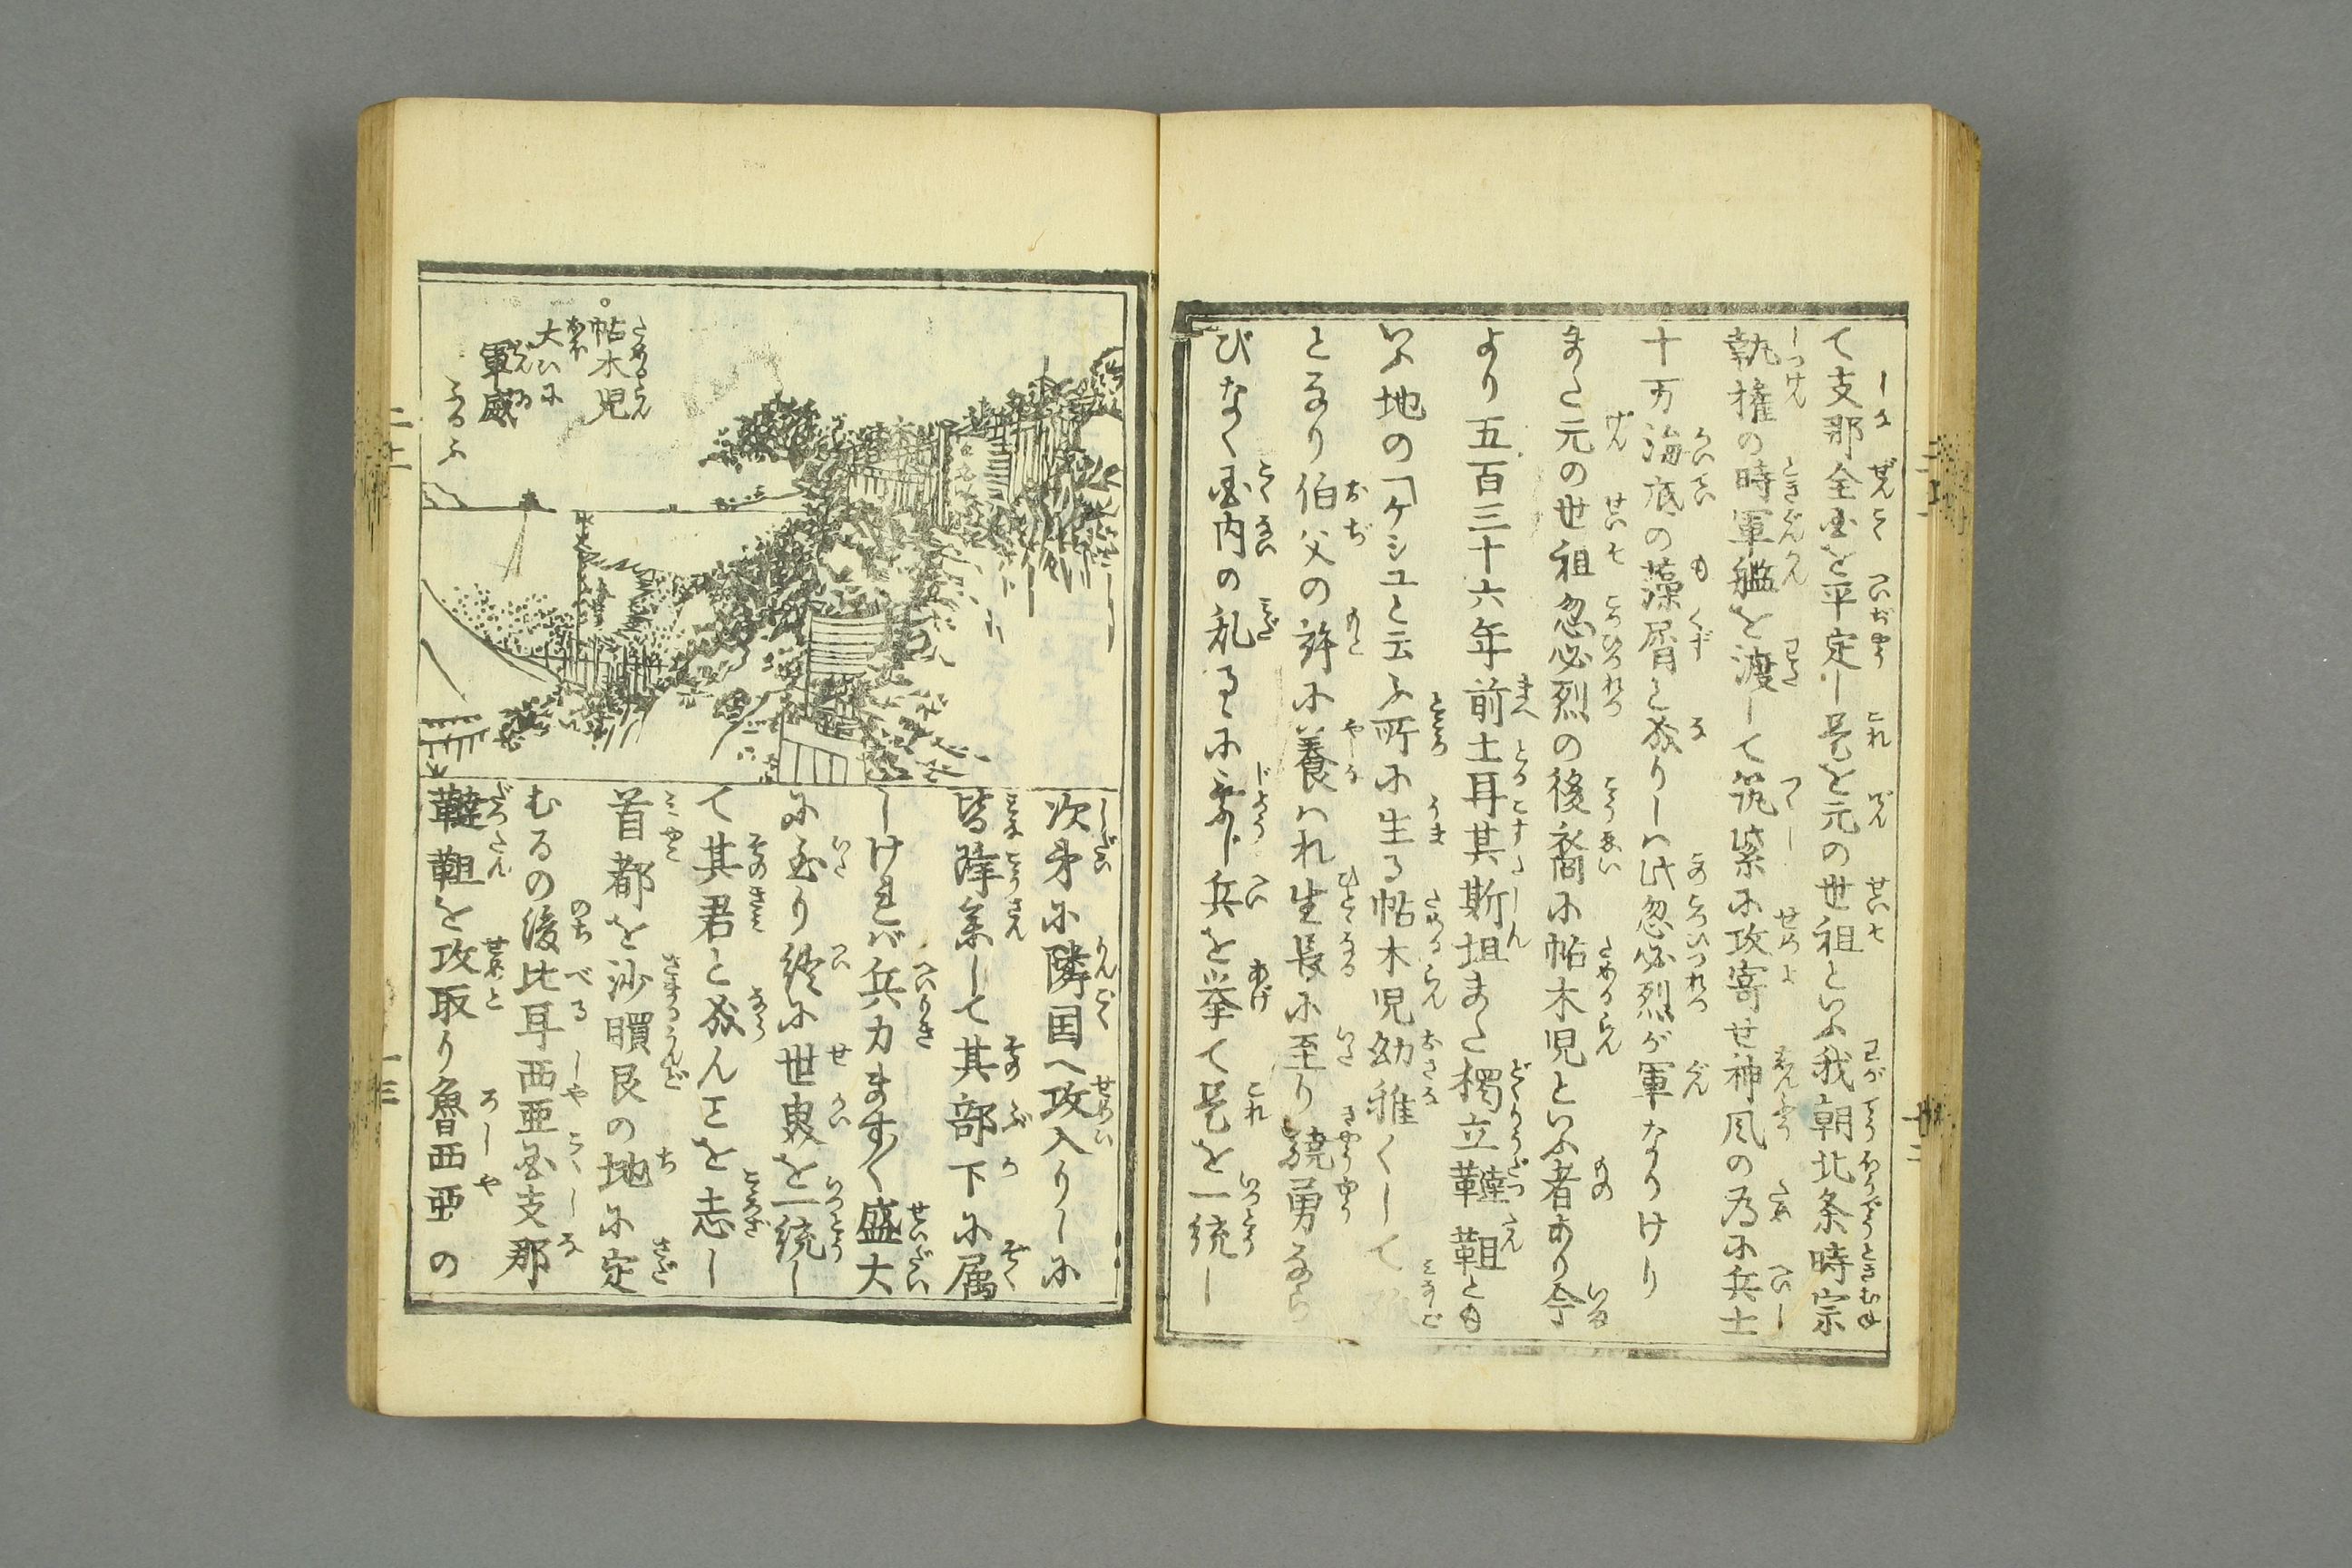 て支那全国を平定し是を元の世祖といふ我朝北条時宗
執権の時軍艦を渡して筑紫に攻寄せ神風の為に兵士
十万海底の藻屑と成りしは此忽必烈が軍なりけり
また元の世祖忽必烈の後裔に帖木児といふ者あり今
より五百三十六年前土耳其斯坦また独立韃靼とも
いふ地の「ケシユと云ふ所に生る帖木児幼稚くして孤
となり伯父の許に養はれ生長に至り驍勇なら
びなく国内の乱るゝに乗じ兵を挙て是を一統し
帖木児
大いに
軍威
ふるふ
次第に隣国へ攻入りしに
皆降参して其部下に属
しければ兵力ます〳〵盛大
に至り終に世界を一統し
て其君と成んことを志し
首都を沙瞋艮の地に定
むるの後比耳西亜国支那
韃靼を攻取り魯西亜の